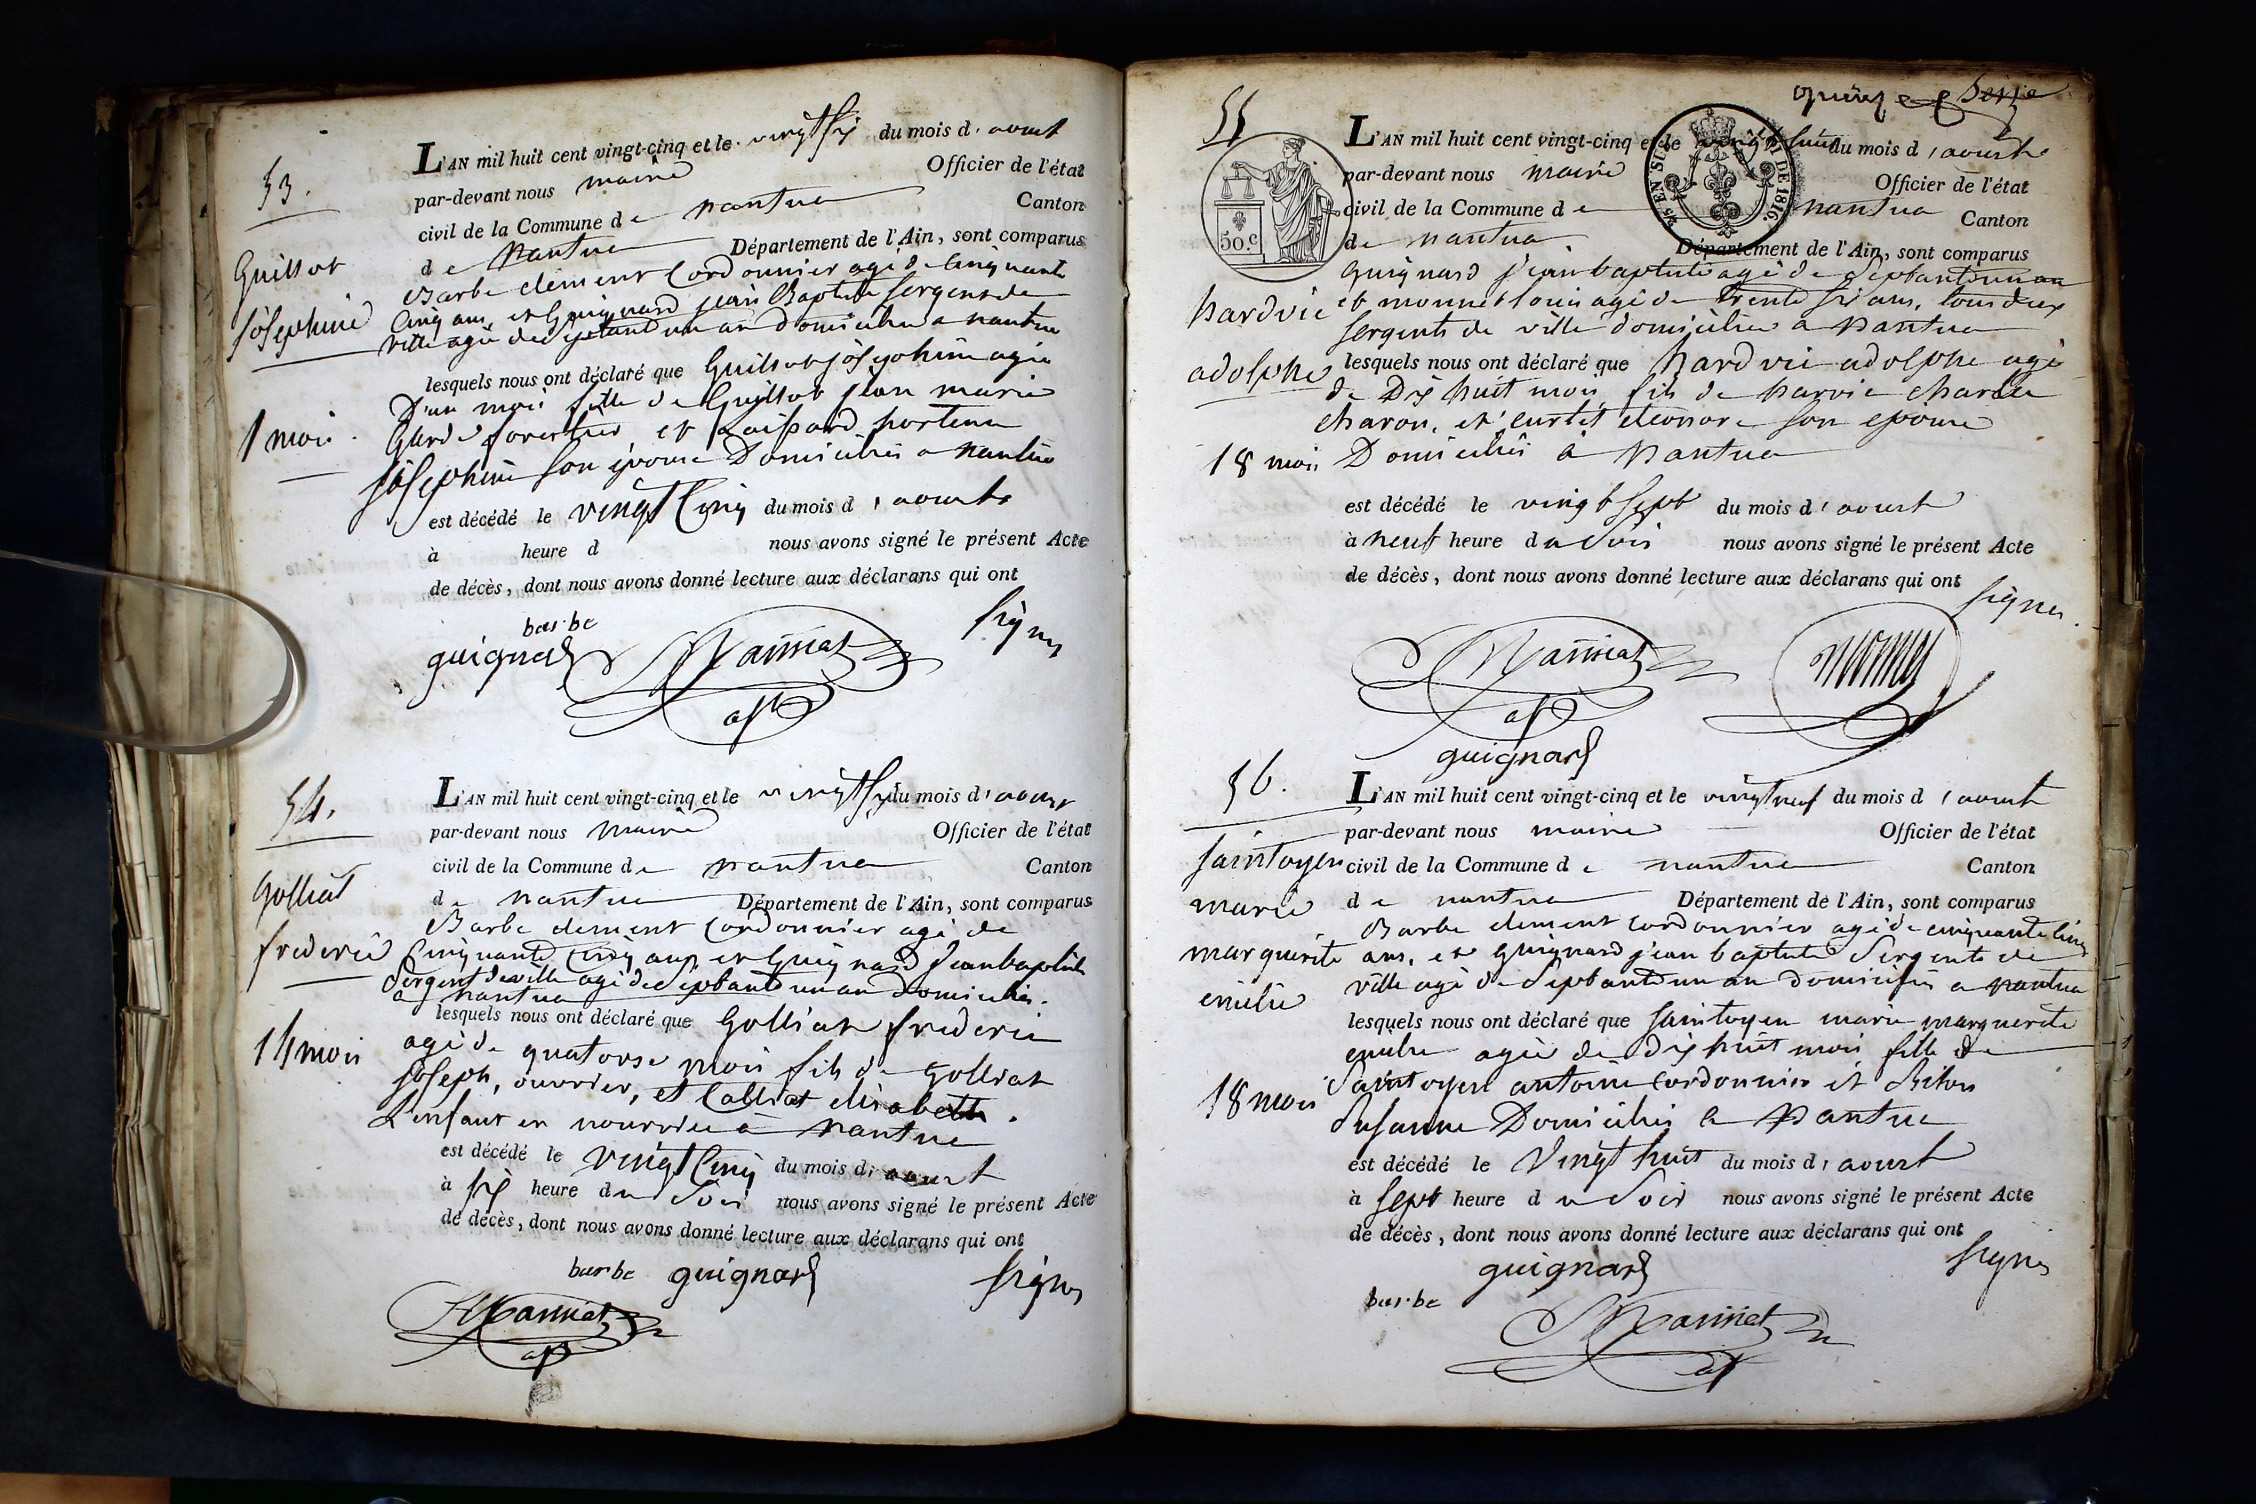 53.
Guillot
joséphine
1 mois.
L'AN mil huit cent vingt-cinq et le vingt six du mois d'aoust
par-devant nous maire Officier de l'état
civil de la Commune de nantua Canton
de Nantua Département de l'Ain, sont comparus
Barbe clément Cordonnier agé de Cinquante
Cinq ans, et Guignard jean Baptiste sergent de
ville agé de septante un an domiciliés a nantua
lesquels nous ont déclaré que Guillot joséphine agée
d'un mois fille de Guillot jean marie
Garde forestier, et hortense
joséphine son épouse Domiciliés a nantua
est décédé le vingt Cinq du mois d'aoust
à heure d nous avons signé le présent Acte
de décès, dont nous avons donné lecture aux déclarans qui ont
signés
barbe
guignard
54.
Golliat
frederic
14 mois
L'AN mil huit cent vingt-cinq et le vingt six du mois d'aoust
par-devant nous maire Officier de l'état
civil de la Commune de nantua Canton
de nantua Département de l'Ain, sont comparus
Barbe clement Cordonnier agé de
Cinquante Cinq ans et Guignard jean baptiste
Sergent de ville agé de septante un an domiciliés
a nantua
lesquels nous ont déclaré que Golliat frederic
agé de quatorse mois fils de Golliat
joseph, ouvrier, et Calliat elisabeth.
L'enfant en nourrice à nantua
est décédé le vingt Cinq du mois d'aoust
à six heure du soir nous avons signé le présent Acte
de décès, dont nous avons donné lecture aux déclarans qui ont
signés
barbe guignard
55
50 c
DE 1816.
hardvie
adolphe
18 mois
L'AN mil huit cent vingt-cinq et le vingt huit du mois d'aoust
par-devant nous maire Officier de l'état
civil de la Commune de nantua Canton
de nantua. Département de l'Ain, sont comparus
Guignard jean baptiste agé de septante un an
et monnet louis agé de trente six ans, tous deux
sergents de ville domiciliés a nantua
lesquels nous ont déclaré que hardvie adolphe agé
de Dix huit mois, fils de harvie charle
charon, et curtet éléonore son epouse
Domiciliés à Nantua
est décédé le vingt sept du mois d'aoust
à neuf heure du soir nous avons signé le présent Acte
de décès, dont nous avons donné lecture aux déclarans qui ont
signés.
monnet
guignard
56.
saintoyen
marie
marguerite
emélie
18 mois
L'AN mil huit cent vingt-cinq et le vingt neuf du mois d'aoust
par-devant nous maire Officier de l'état
civil de la Commune de nantua Canton
de nantua Département de l'Ain, sont comparus
Barbe clement cordonnier agé de cinquante cinq
ans, et guignard jean baptiste Sergent de
ville agé de septante un an domiciliés a nantua
lesquels nous ont déclaré que saintoyen marie marguerite
emelie agée de dix huit mois fille de
Saintoyen antoine Cordonnier et
susanne Domiciliés a Nantua
est décédé le Vingt huit du mois d'aoust
à sept heure du soir nous avons signé le présent Acte
de décès, dont nous avons donné lecture aux déclarans qui ont
signés
guignard
barbe